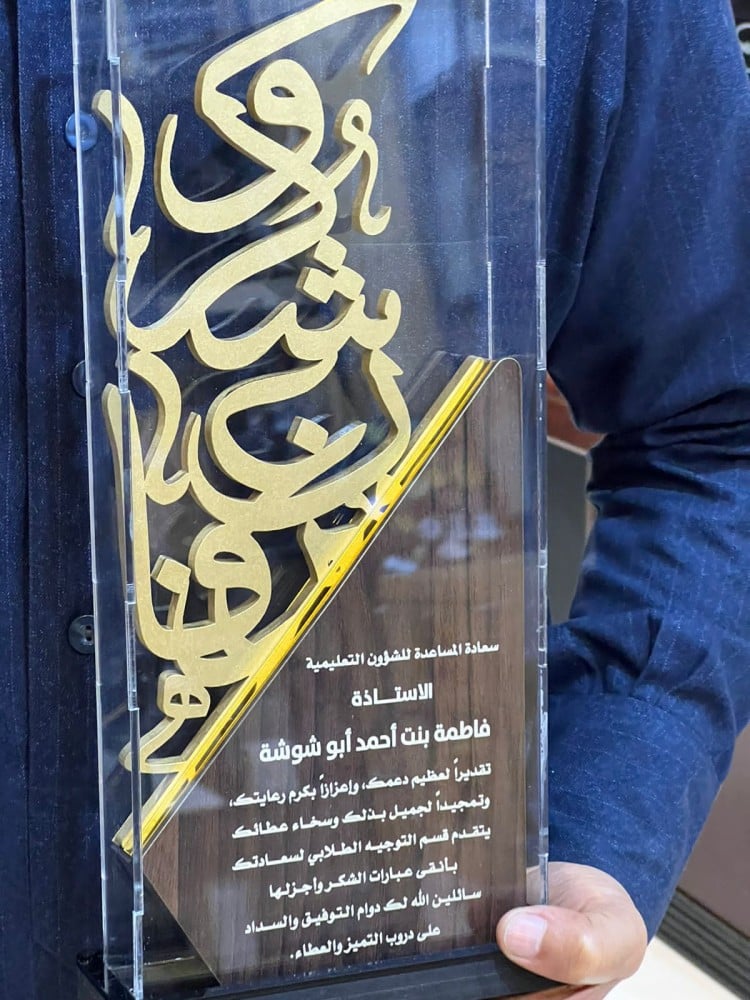 سعادة المساعدة للشؤون التعليمية
الاستـــاذة
فاطمة بنت أحمد أبو شوشة
تقديراً لعظيم دعمك، وإعزازاً بكرم رعايتك،
وتمجيداً لجميل بذلك وسخاء عطائك
يتقدم قسم التوجيه الطلابي لسعادتك
بانقى عبارات الشكر وأجزلها
سائلين الله لك دوام التوفيق والسداد
على دروب التميز والعطاء.